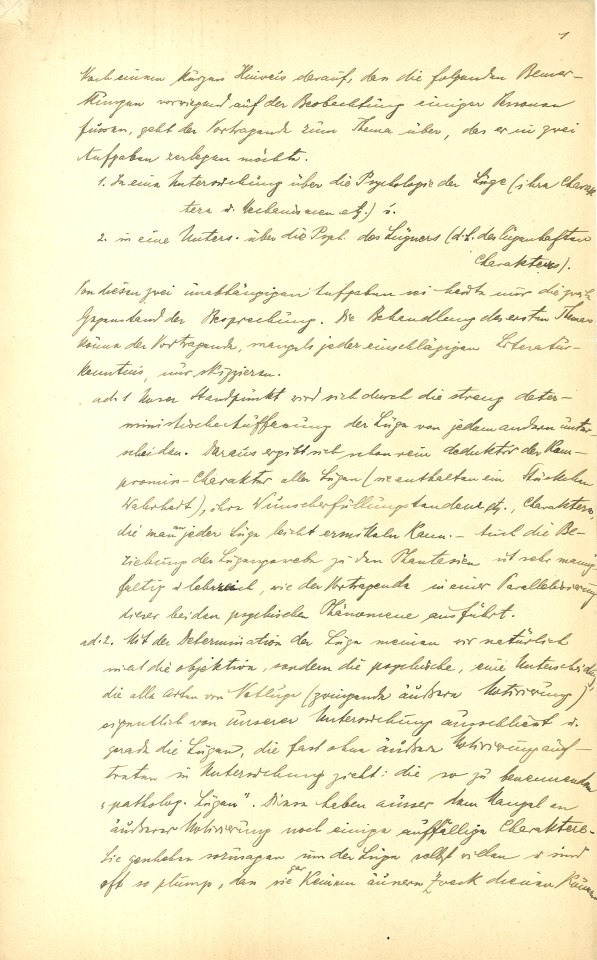 1
Nach einem kurzen Hinweis darauf, dass die folgenden Bemer-
kungen vorwiegend auf der Beobachtung einiger Personen
fussen, geht der Vortragende zum Thema über, das er in zwei
Aufgaben zerlegen möchte.
1. In eine Untersuchung über die Psychologie der Lüge (ihre Charak-
tere u. Mechanismen etz.) u.
2. in eine Unters. über die Psych. des Lügners (d.h. des lügenhaften
Charakters).
Von diesen zwei unabhängigen Aufgaben sei heute nur die zweite
Gegenstand der Besprechung. Die Behandlung des ersten Themas
könne der Vortragende, mangels jeder einschlägigen Literatur-
kenntnis, nur skizzieren.
ad. 1 Unser Standpunkt wird sich durch die streng deter-
ministische Auffassung der Lüge von jedem andern unter-
scheiden. Daraus ergibt sich schon rein deduktiv der Kom-
promiss-Charakter aller Lügen (sie enthalten ein Stückchen
Wahrheit), ihre Wunscherfüllungstendenz etz., Charaktere,
die man an jeder Lüge leicht ermitteln kann. – Auch die Be-
ziehung des Lügengewebes zu den Phantasien ist sehr mannig-
faltig u lehrreich, wie der Vortragende in einer Parallelisierung
dieser beiden psychischen Phänomene ausführt.
ad. 2. Mit der Determination der Lüge meinen wir natürlich
nicht die objektive, sondern die psychische, eine Unterscheidung,
die alle Arten von Notlüge (zwingende äussere Motivierung)
eigentlich von unserer Untersuchung ausschliesst u.
gerade die Lügen, die fast ohne äussere Motivierung auf-
treten in Untersuchung zieht: die so zu benennenden
„patholog. Lügen". Diese haben ausser dem Mangel an
äusserer Motivierung noch einige auffällige Charaktere.
Sie geschehen sozusagen um der Lüge selbst willen u sind
oft so plump, dass sie gar keinem äussern Zweck dienen können